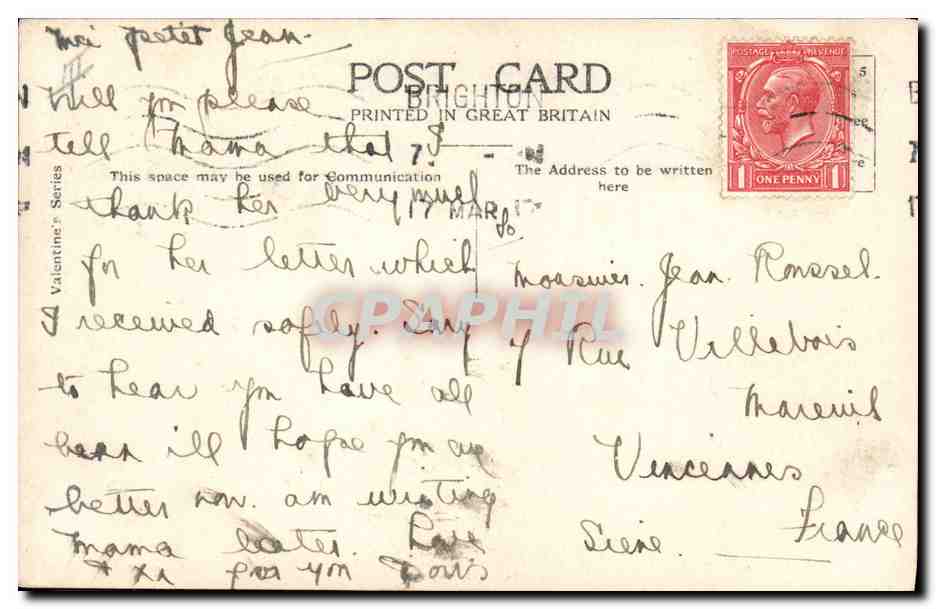 Mci petet Jean-
Will you please
tell Mama that I
thank her very much
for her letter which
I received safely. Sory
to hear you have all
been ill hope you are
better now. am writing
Mama later. Love
xxx for you Doris
POST CARD
BRIGHTON
PRINTED IN GREAT BRITAIN
This space may be used for Communication
The Address to be written
here
17 MAR
Valentine's Series
POSTAGE REVENUE
1 ONE PENNY 1
Monsuier. Jean Roussel.
7 Rue Villebois
Mareuil
Vincennes
Siene. France
CPAPHIL